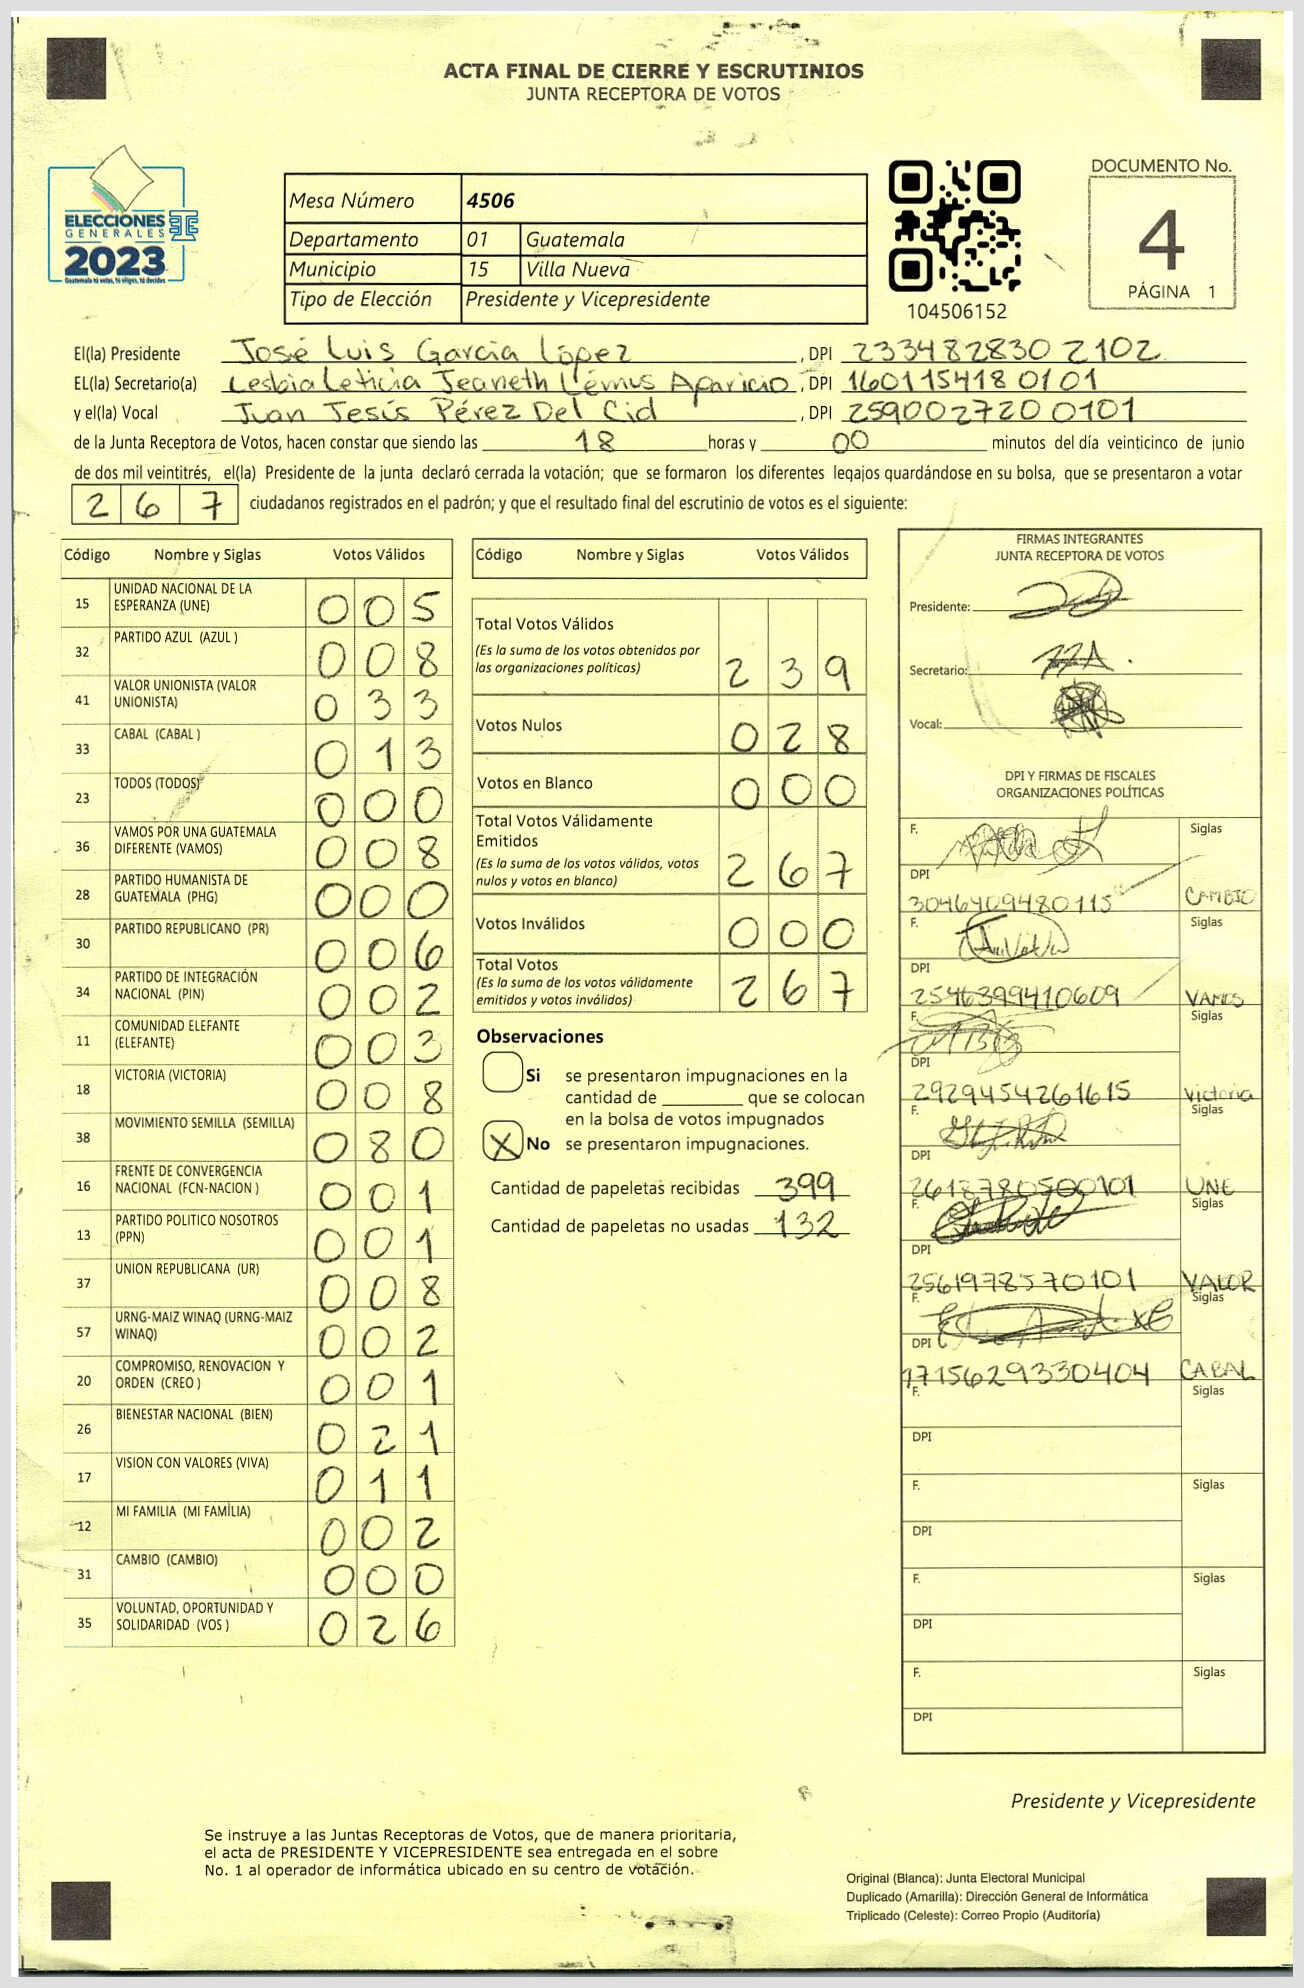 ACTA FINAL DE CIERRE Y ESCRUTINIOS
JUNTA RECEPTORA DE VOTOS
ELECCIONES
GENERALES
2023
Guatemala tú votas, tú eliges, tú decides
Mesa Número 4506
Departamento 01 Guatemala
Municipio 15 Villa Nueva
Tipo de Elección Presidente y Vicepresidente
104506152
DOCUMENTO No.
4
PÁGINA 1
El(la) Presidente José Luis García López , DPI 2334828302102
EL(la) Secretario(a) Lesbia Leticia Jeaneth Lémus Aparicio , DPI 1601154180101
y el(la) Vocal Juan Jesús Pérez Del Cid , DPI 2590027200101
de la Junta Receptora de Votos, hacen constar que siendo las 18 horas y 00 minutos del día veinticinco de junio
de dos mil veintitrés, el(la) Presidente de la junta declaró cerrada la votación; que se formaron los diferentes legajos guardándose en su bolsa, que se presentaron a votar
2 6 7 ciudadanos registrados en el padrón; y que el resultado final del escrutinio de votos es el siguiente:
Código Nombre y Siglas Votos Válidos
15 UNIDAD NACIONAL DE LA ESPERANZA (UNE) 0 0 5
32 PARTIDO AZUL (AZUL ) 0 0 8
41 VALOR UNIONISTA (VALOR UNIONISTA) 0 3 3
33 CABAL (CABAL ) 0 1 3
23 TODOS (TODOS) 0 0 0
36 VAMOS POR UNA GUATEMALA DIFERENTE (VAMOS) 0 0 8
28 PARTIDO HUMANISTA DE GUATEMALA (PHG) 0 0 0
30 PARTIDO REPUBLICANO (PR) 0 0 6
34 PARTIDO DE INTEGRACIÓN NACIONAL (PIN) 0 0 2
11 COMUNIDAD ELEFANTE (ELEFANTE) 0 0 3
18 VICTORIA (VICTORIA) 0 0 8
38 MOVIMIENTO SEMILLA (SEMILLA) 0 8 0
16 FRENTE DE CONVERGENCIA NACIONAL (FCN-NACION ) 0 0 1
13 PARTIDO POLITICO NOSOTROS (PPN) 0 0 1
37 UNION REPUBLICANA (UR) 0 0 8
57 URNG-MAIZ WINAQ (URNG-MAIZ WINAQ) 0 0 2
20 COMPROMISO, RENOVACION Y ORDEN (CREO ) 0 0 1
26 BIENESTAR NACIONAL (BIEN) 0 2 1
17 VISION CON VALORES (VIVA) 0 1 1
12 MI FAMILIA (MI FAMILIA) 0 0 2
31 CAMBIO (CAMBIO) 0 0 0
35 VOLUNTAD, OPORTUNIDAD Y SOLIDARIDAD (VOS ) 0 2 6
Código Nombre y Siglas Votos Válidos
Total Votos Válidos
(Es la suma de los votos obtenidos por
las organizaciones políticas) 2 3 9
Votos Nulos 0 2 8
Votos en Blanco 0 0 0
Total Votos Válidamente
Emitidos
(Es la suma de los votos válidos, votos
nulos y votos en blanco) 2 6 7
Votos Inválidos 0 0 0
Total Votos
(Es la suma de los votos válidamente
emitidos y votos inválidos) 2 6 7
Observaciones
Si se presentaron impugnaciones en la
cantidad de ________ que se colocan
en la bolsa de votos impugnados
X No se presentaron impugnaciones.
Cantidad de papeletas recibidas 399
Cantidad de papeletas no usadas 132
FIRMAS INTEGRANTES
JUNTA RECEPTORA DE VOTOS
Presidente:
Secretario:
Vocal:
DPI Y FIRMAS DE FISCALES
ORGANIZACIONES POLÍTICAS
F. Siglas
DPI
3046409480115 CAMBIO
F. Siglas
DPI
2546399410609 VAMOS
F. Siglas
DPI
2929454261615 Victoria
F. Siglas
DPI
2618780500101 UNE
F. Siglas
DPI
2561978570101 VALOR
F. Siglas
DPI
1715629330404 CABAL
F. Siglas
DPI
F. Siglas
DPI
F. Siglas
DPI
F. Siglas
DPI
Presidente y Vicepresidente
Se instruye a las Juntas Receptoras de Votos, que de manera prioritaria,
el acta de PRESIDENTE Y VICEPRESIDENTE sea entregada en el sobre
No. 1 al operador de informática ubicado en su centro de votación.
Original (Blanca): Junta Electoral Municipal
Duplicado (Amarilla): Dirección General de Informática
Triplicado (Celeste): Correo Propio (Auditoría)